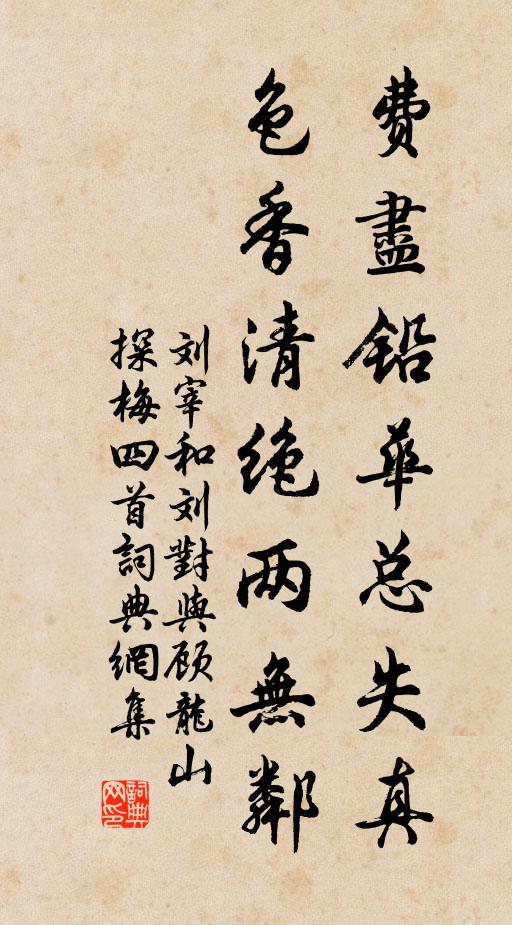 费盡铅華总失真
色香清绝两無鄰
刘宰和刘對與顾龍山
探梅四首詞典網集
詞典网印